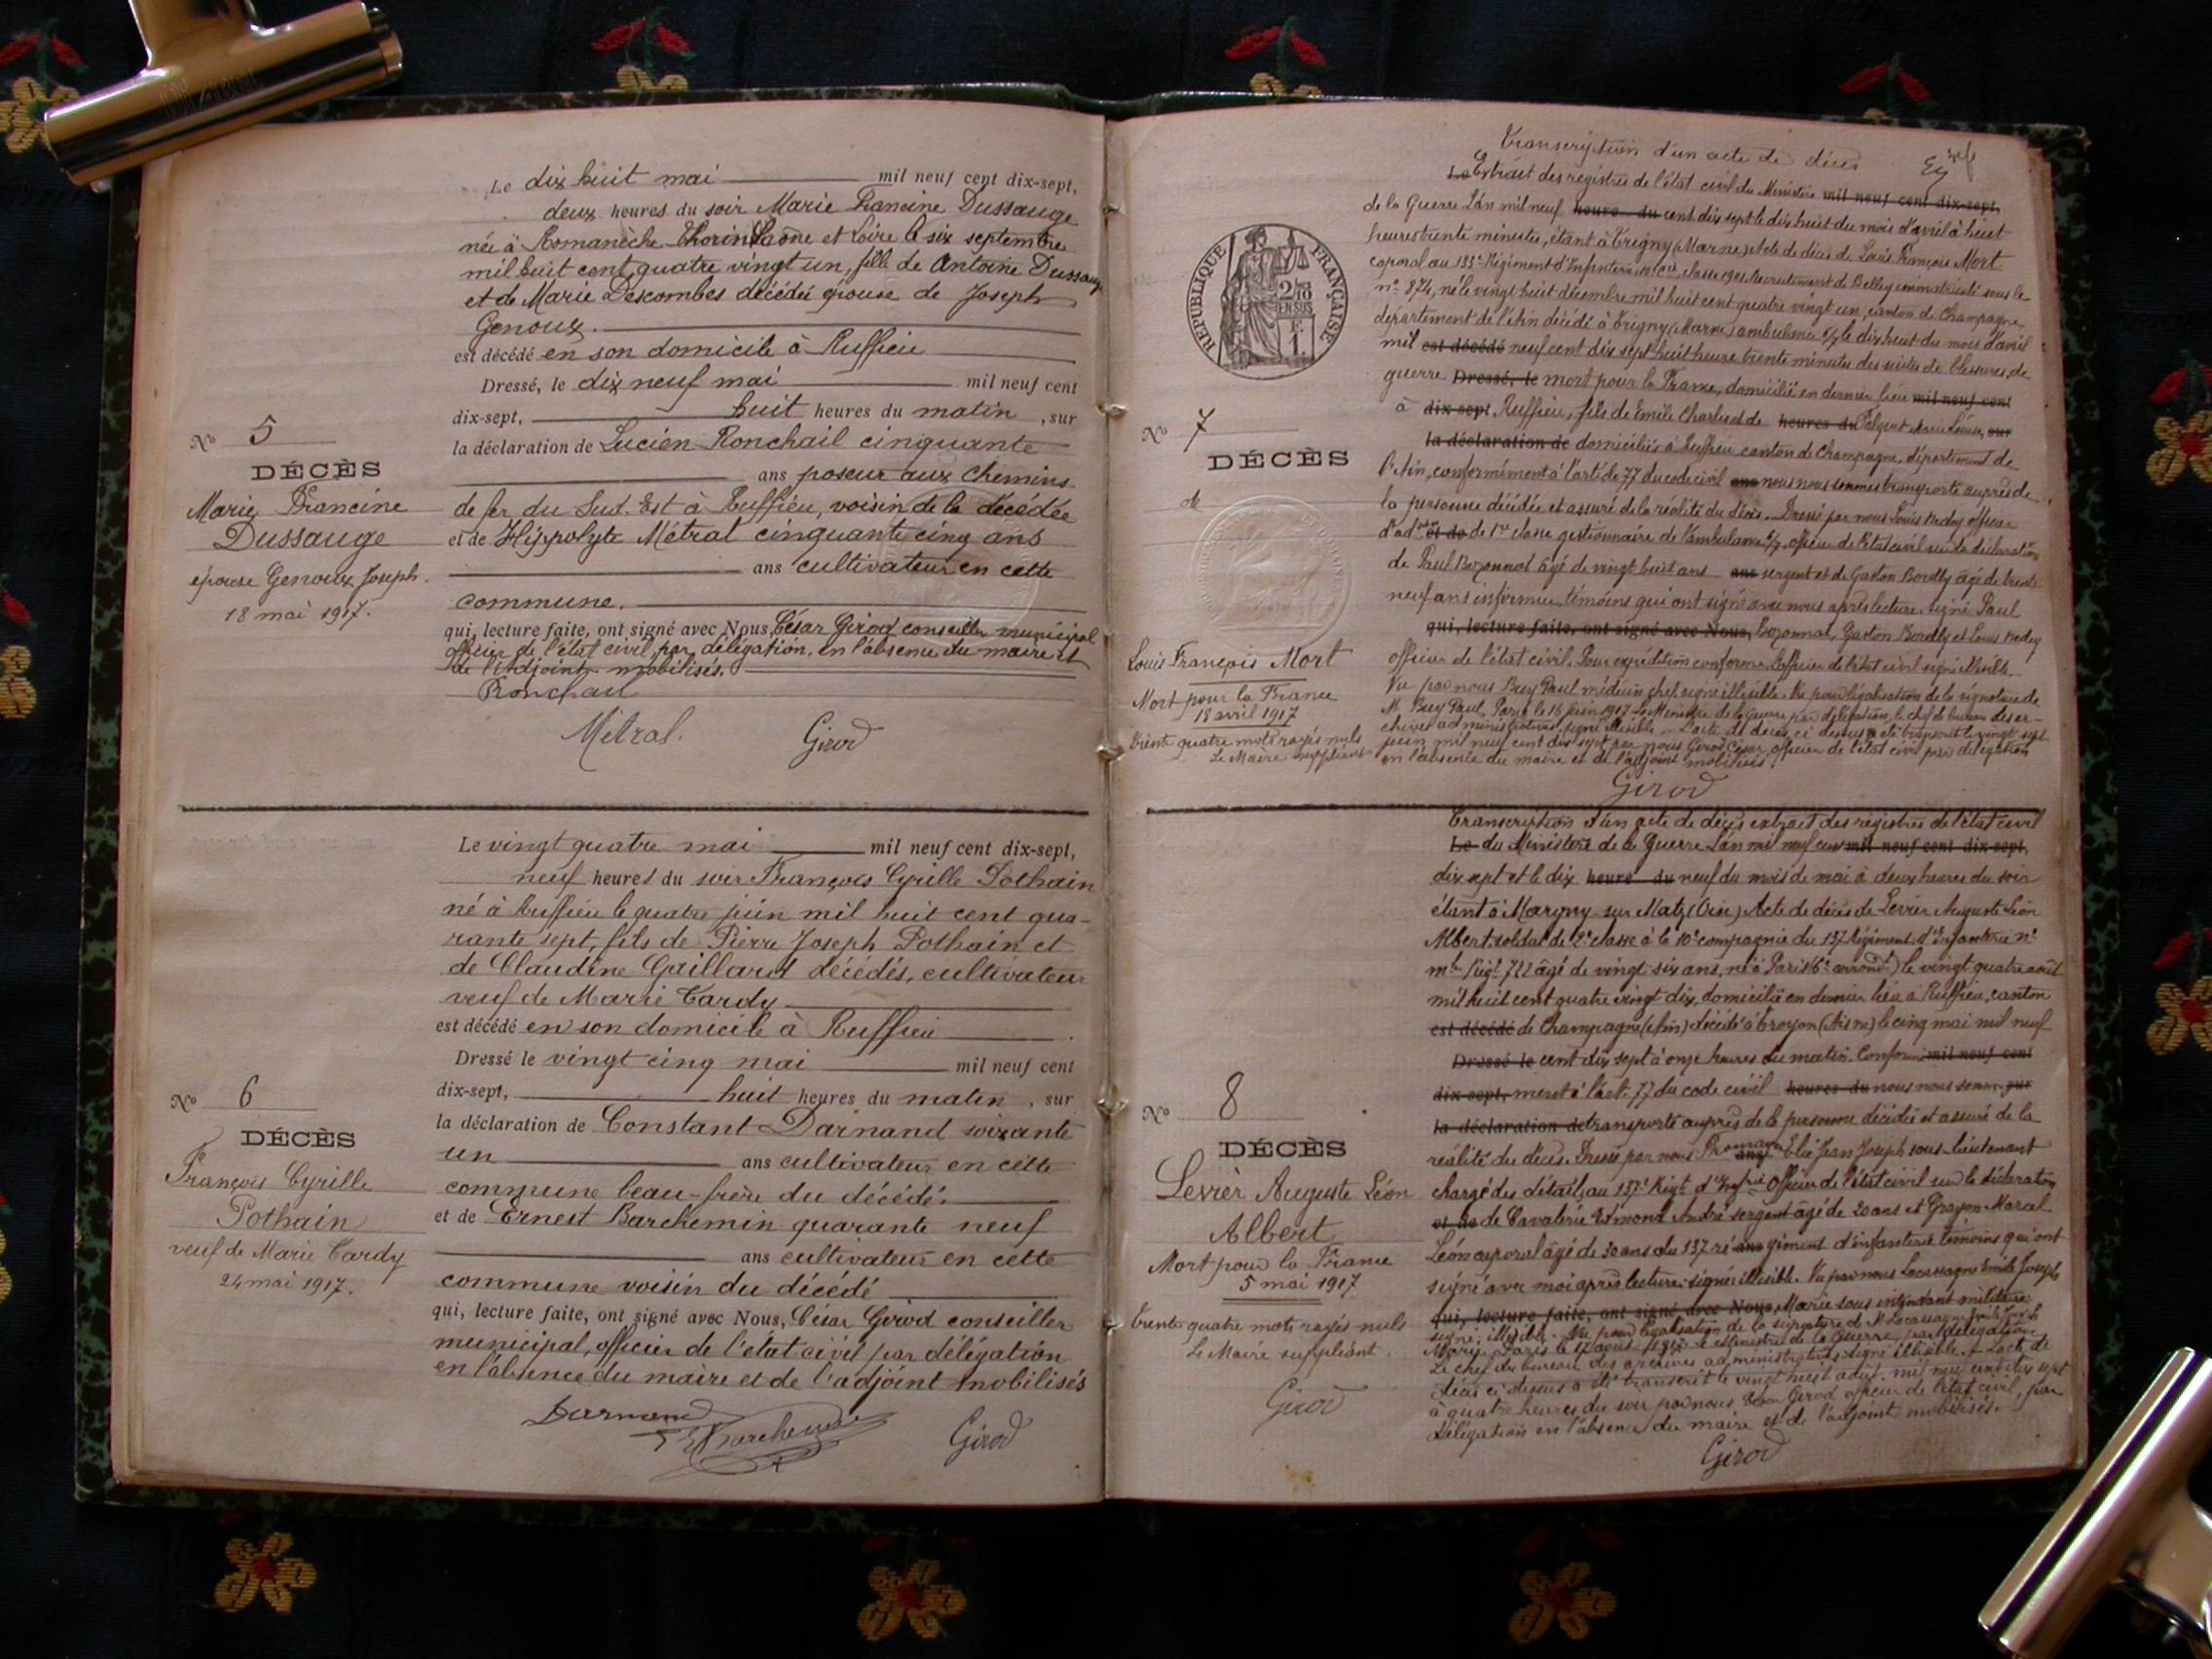 Le dix huit mai mil neuf cent dix-sept,
deux heures du soir Marie Francine Dussauge
née à Romanèche Thorin Saône et Loire le six septembre
mil huit cent quatre vingt un, fille de Antoine Dussauge
et de Marie Descombes décédée épouse de Joseph
Genoux.
est décédé en son domicile à Ruffieu
Dressé, le dix neuf mai mil neuf cent
dix-sept, huit heures du matin, sur
la déclaration de Lucien Ronchail cinquante
ans poseur aux chemins
de fer du Sud. Est à Ruffieu, voisin de la décédée
et de Hippolyte Métral cinquante cinq ans
ans cultivateur en cette
commune.
qui, lecture faite, ont signé avec Nous, César Girod conseiller municipal
officier de l'état civil par délégation, en l'absence du maire et
de l'adjoint mobilisés.
Ronchail
Métral. Girod
No 5
DÉCÈS
Marie Francine
Dussauge
épouse Genoux Joseph.
18 mai 1917.
Le vingt quatre mai mil neuf cent dix-sept,
neuf heures du soir François Cyrille Pothain
né à Ruffieu le quatre juin mil huit cent qua-
rante sept, fils de Pierre Joseph Pothain et
de Claudine Gaillard décédés, cultivateur
veuf de Marie Tardy
est décédé en son domicile à Ruffieu
Dressé le vingt cinq mai mil neuf cent
dix-sept, huit heures du matin, sur
la déclaration de Constant Darnand soixante
un ans cultivateur en cette
commune beau-frère du décédé.
et de Ernest Barchemin quarante neuf
ans cultivateur en cette
commune voisin du décédé
qui, lecture faite, ont signé avec Nous, César Girod conseiller
municipal, officier de l'état civil par délégation
en l'absence du maire et de l'adjoint mobilisés
Darnand
E Barchemin Girod
No 6
DÉCÈS
François Cyrille
Pothain
veuf de Marie Tardy
24 mai 1917.
Transcription d'un acte de décès
Le Extrait des registres de l'état civil du Ministère mil neuf cent dix-sept,
de la Guerre. L'an mil neuf heure du cent dix sept le dix huit du mois d'avril à huit
heures trente minutes, étant à Trigny (Marne) Acte de décès de Louis François Mort
caporal au 133e Régiment d'Infanterie, classe 1901, Recrutement de Belley immatriculé sous le
no 874, né le vingt huit décembre mil huit cent quatre vingt un, canton de Champagne,
département de l'Ain décédé à Trigny (Marne) ambulance le dix huit du mois d'avril
mil est décédé neuf cent dix sept huit heure trente minutes des suites de blessures de
guerre Dressé, le mort pour la France, domicilié en dernier lieu mil neuf cent
à dix-sept Ruffieu, fils de Emile Charles et de heures du Marie Louise, sur
la déclaration de domiciliés à Ruffieu canton de Champagne, département de
l'Ain, conformément à l'article 77 du code civil ans nous nous sommes transporté auprès de
la personne décédée et assuré de la réalité du décès. Dressé par nous Louis Meday officier
d'adon et de de 1re classe gestionnaire de l'ambulance, officier de l'état civil sur la déclaration
de Paul Bozonnat âgé de vingt huit ans ans sergent et de Gaston Bordly âgé de trente
neuf ans infirmier témoins qui ont signé avec nous après lecture. signé Paul
qui, lecture faite, ont signé avec Nous, Bozonnat, Gaston Bordly et Louis Meday
officier de l'état civil. Pour expédition conforme. L'officier de l'état civil signé illisible.
Vu par nous Buy Paul médecin chef, signé illisible. Vu pour légalisation de la signature de
M. Buy Paul, Paris le 16 juin 1917 Le Ministre de la Guerre par délégation, le chef du bureau des ar-
chives administratives, signé illisible. L'acte de décès ci dessus a été transcrit le vingt sept
juin mil neuf cent dix sept par nous Girod César, officier de l'état civil par délégation
en l'absence du maire et de l'adjoint mobilisés.
Girod
RÉPUBLIQUE FRANÇAISE
2/10
EN SUS
F.
1
No 7
DÉCÈS
de
Louis François Mort
Mort pour la France
18 avril 1917
Trente quatre mots rayés nuls
Le Maire suppléant
Transcription d'un acte de décès extrait des registres de l'état civil
Le du Ministère de la Guerre L'an mil neuf cent mil neuf cent dix-sept,
dix sept et le dix heure du neuf du mois de mai à deux heures du soir
étant à Margny sur Matz (Oise) Acte de décès de Levrier Auguste Léon
Albert soldat de 2e classe à la 10e compagnie du 137 Régiment d'Infanterie no
mle Régt 722 âgé de vingt six ans, né à Paris (6e arrondt) le vingt quatre août
mil huit cent quatre vingt dix, domicilié en dernier lieu à Ruffieu, canton
est décédé de Champagne (Ain) décédé à Troyon (Aisne) le cinq mai mil neuf
Dressé le cent dix sept à onze heures du matin. Conformé mil neuf cent
dix-sept, ment à l'art. 77 du code civil heures du nous nous somm. sur
la déclaration de transporté auprès de la personne décédée et assuré de la
réalité du décès. Dressé par nous ans, Elie Jean Joseph sous-lieutenant
chargé des détails au 137e Régt d'Infrie Officier de l'état civil sur la déclaration
et de de Cavalerie Edmond André sergent âgé de 20 ans et Grayon Maral
Léon caporal âgé de 30 ans du 137 ré ans giment d'infanterie témoins qui ont
signé avec moi après lecture signés illisible. Vu par nous Lacassagne Emile Joseph
qui, lecture faite, ont signé avec Nous, Marie sous intendant militaire
signé: illisible. Vu pour légalisation de la signature de M. Lacassagne Emile Joseph
Marie. Paris le 17 août 1917. Le Ministre de la Guerre, par délégation
Le chef du bureau des archives administratives signé illisible. L'acte de
décès ci dessus a été transcrit le vingt huit août mil neuf cent dix sept
à quatre heures du soir par nous, César Girod officier de l'état civil, par
délégation en l'absence du maire et de l'adjoint mobilisés.
Girod
No 8
DÉCÈS
Levrier Auguste Léon
Albert
Mort pour la France
5 mai 1917
Trente quatre mots rayés nuls
Le Maire suppléant.
Girod